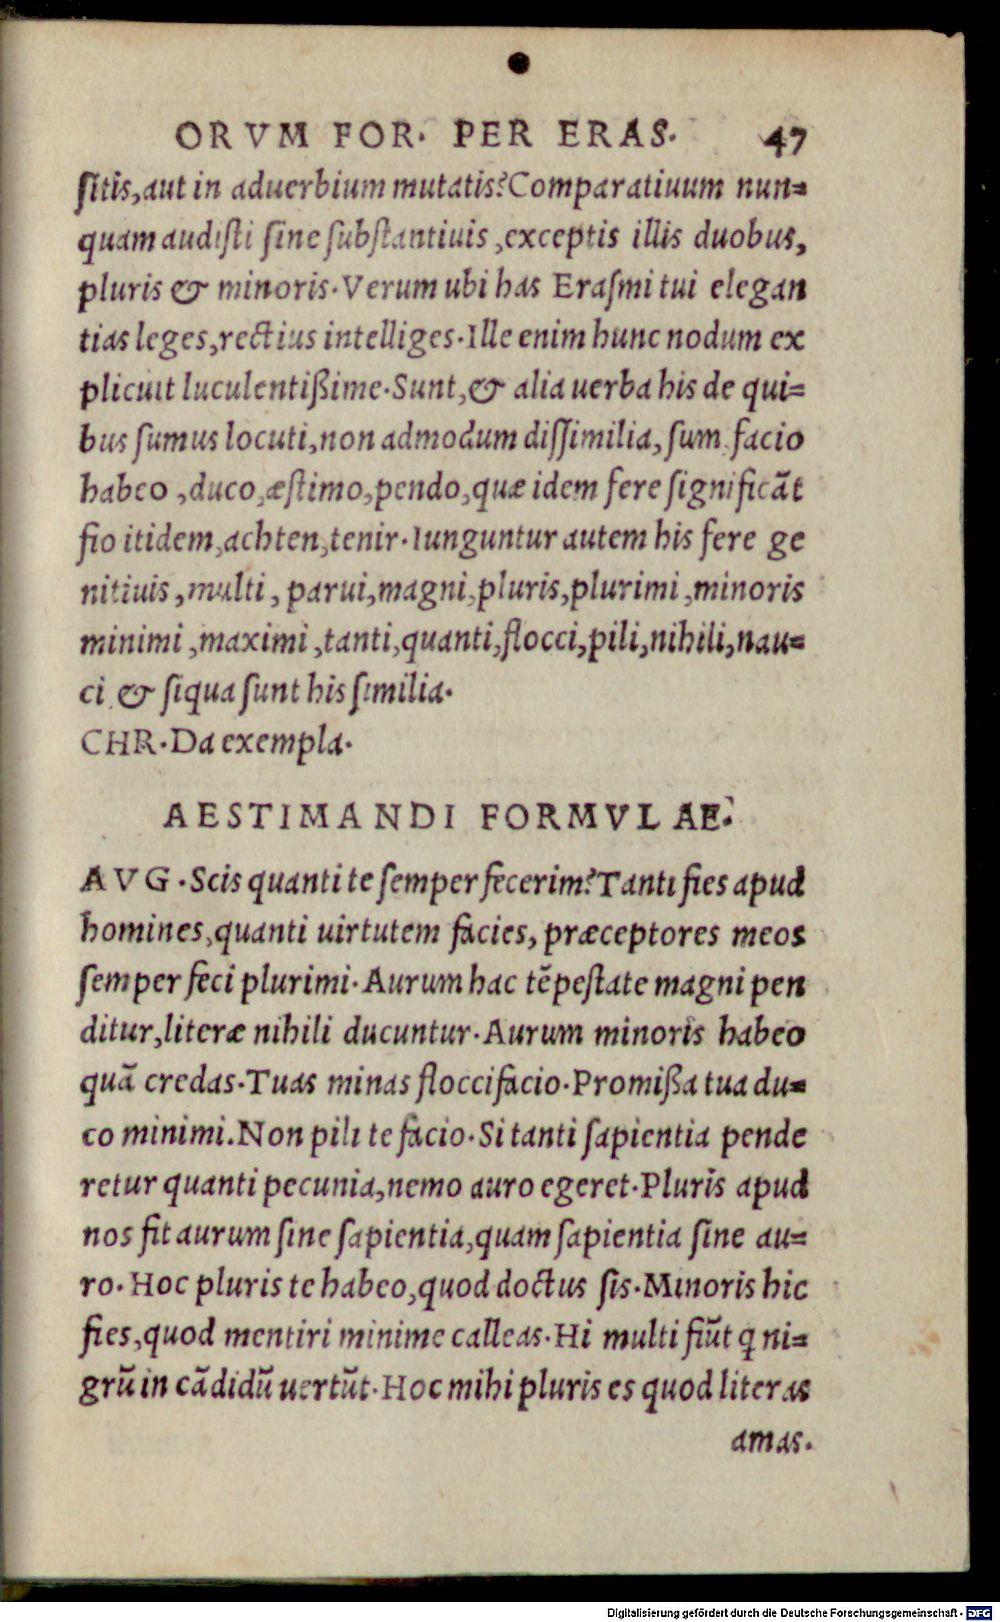 ORVM FOR. PER ERAS. 47
ſitis,aut in aduerbium mutatis?Comparatiuum nun=
quam audiſti ſine ſubſtantiuis ,exceptis illis duobus,
pluris & minoris. Verum ubi has Eraſmi tui elegan
tias leges,rectius intelliges. Ille enim hunc nodum ex
plicuit luculentißime. Sunt,& alia uerba his de qui=
bus ſumus locuti,non admodum diſſimilia, ſum facio
habeo ,duco,æſtimo,pendo,quæ idem fere ſignificãt
fio itidem,achten,tenir. Iunguntur autem his fere ge
nitiuis ,multi , parui,magni,pluris,plurimi ,minoris
minimi ,maximi ,tanti,quanti,flocci,pili,nihili,nau=
ci & ſiqua ſunt his ſimilia.
CHR. Da exempla.
AESTIMANDI FORMVLAE.
AVG. Scis quanti te ſemper fecerim?Tanti fies apud
homines,quanti uirtutem facies, præceptores meos
ſemper feci plurimi. Aurum hac tẽpeſtate magni pen
ditur,literæ nihili ducuntur. Aurum minoris habeo
quã credas. Tuas minas floccifacio. Promißa tua du=
co minimi. Non pili te facio. Si tanti ſapientia pende
retur quanti pecunia,nemo auro egeret. Pluris apud
nos fit aurum ſine ſapientia,quam ſapientia ſine au=
ro. Hoc pluris te habeo,quod doctus ſis. Minoris hic
fies,quod mentiri minime calleas. Hi multi fiũt ꝗ ni=
grũ in cãdidũ uertũt. Hoc mihi pluris es quod literas
amas.
Digitalisierung gefördert durch die Deutsche Forschungsgemeinschaft - DFG